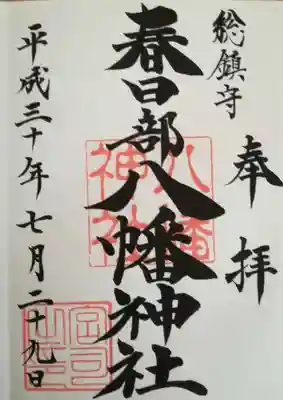 総鎮守
奉拝
春日部八幡神社
八幡
神社
平成三十年七月二十九日